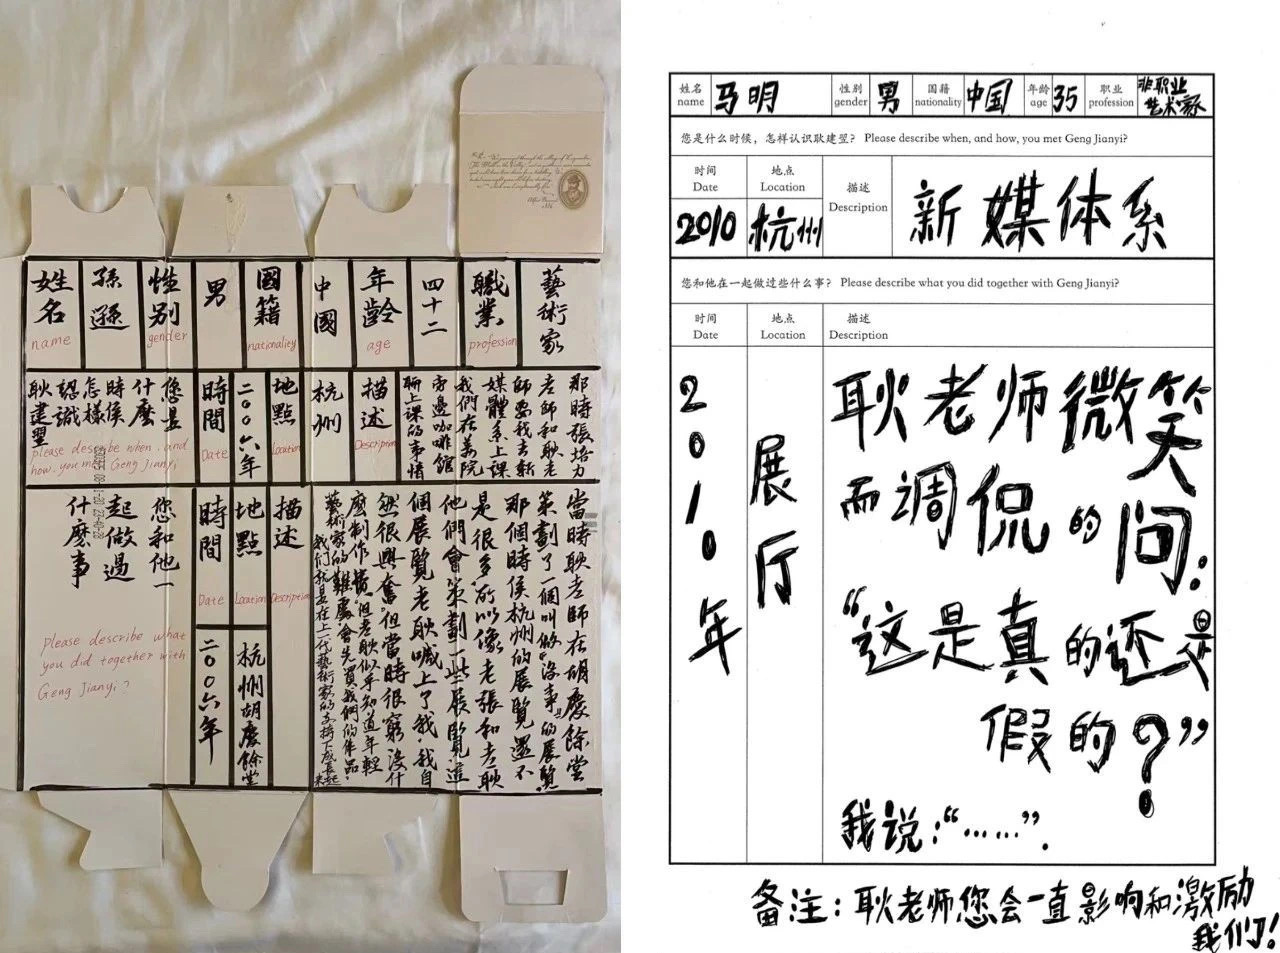 姓名
name
孫遜
性别
gender
男
國籍
nationality
中國
年齡
age
四十二
職業
profession
藝術家
您是
什麼
時候
怎樣
認識
耿建翌
please describe when, and
how, you met Geng Jianyi
時間
Date
二〇〇六年
地點
Location
杭州
描述
Description
那時張培力
老師和耿老
師要我去新
媒體系上課
我們在美院
旁邊咖啡館
聊上課的事情
您和他一
起做過
什麼事
Please describe what
you did together with
Geng Jianyi?
時間
Date
二〇〇六年
地點
Location
杭州胡慶餘堂
描述
Description
當時耿老師在胡慶餘堂
策劃了一個叫做“没事”的展覽
那個時侯杭州的展覽還不
是很多，所以像老張和老耿
他們會策劃一些展覽，這
個展覽老耿喊上了我，我自
然很興奮，但當時很窮没什
麼制作費，但老耿似乎知道年輕
藝術家的難處，會先買我們的作品，
我們就是在上一代藝術家的支持下成長起來
姓名
name
马明
性别
gender
男
国籍
nationality
中国
年龄
age
35
职业
profession
非职业
艺术家
您是什么时候，怎样认识耿建翌？ Please describe when, and how, you met Geng Jianyi?
时间
Date
地点
Location
描述
Description
新媒体系
2010
杭州
您和他在一起做过些什么事？ Please describe what you did together with Geng Jianyi?
时间
Date
地点
Location
描述
Description
2010年
展厅
耿老师微笑
而调侃的问：
“这是真的还是
假的？”
我说：“……”．
备注：耿老师您会一直影响和激励
我们！